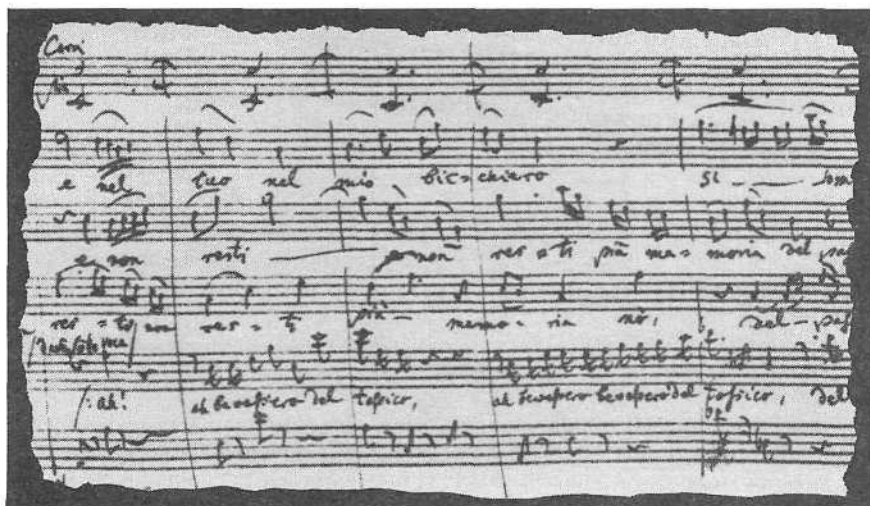 Corni
e nel tuo nel mio bic=chiero si
e non resti e non res=ti più me=moria del
res=ti non res=ti più memo=ria nò, del
ah! ah bevessero del tossico, ah bevessero bevessero del tossico, del